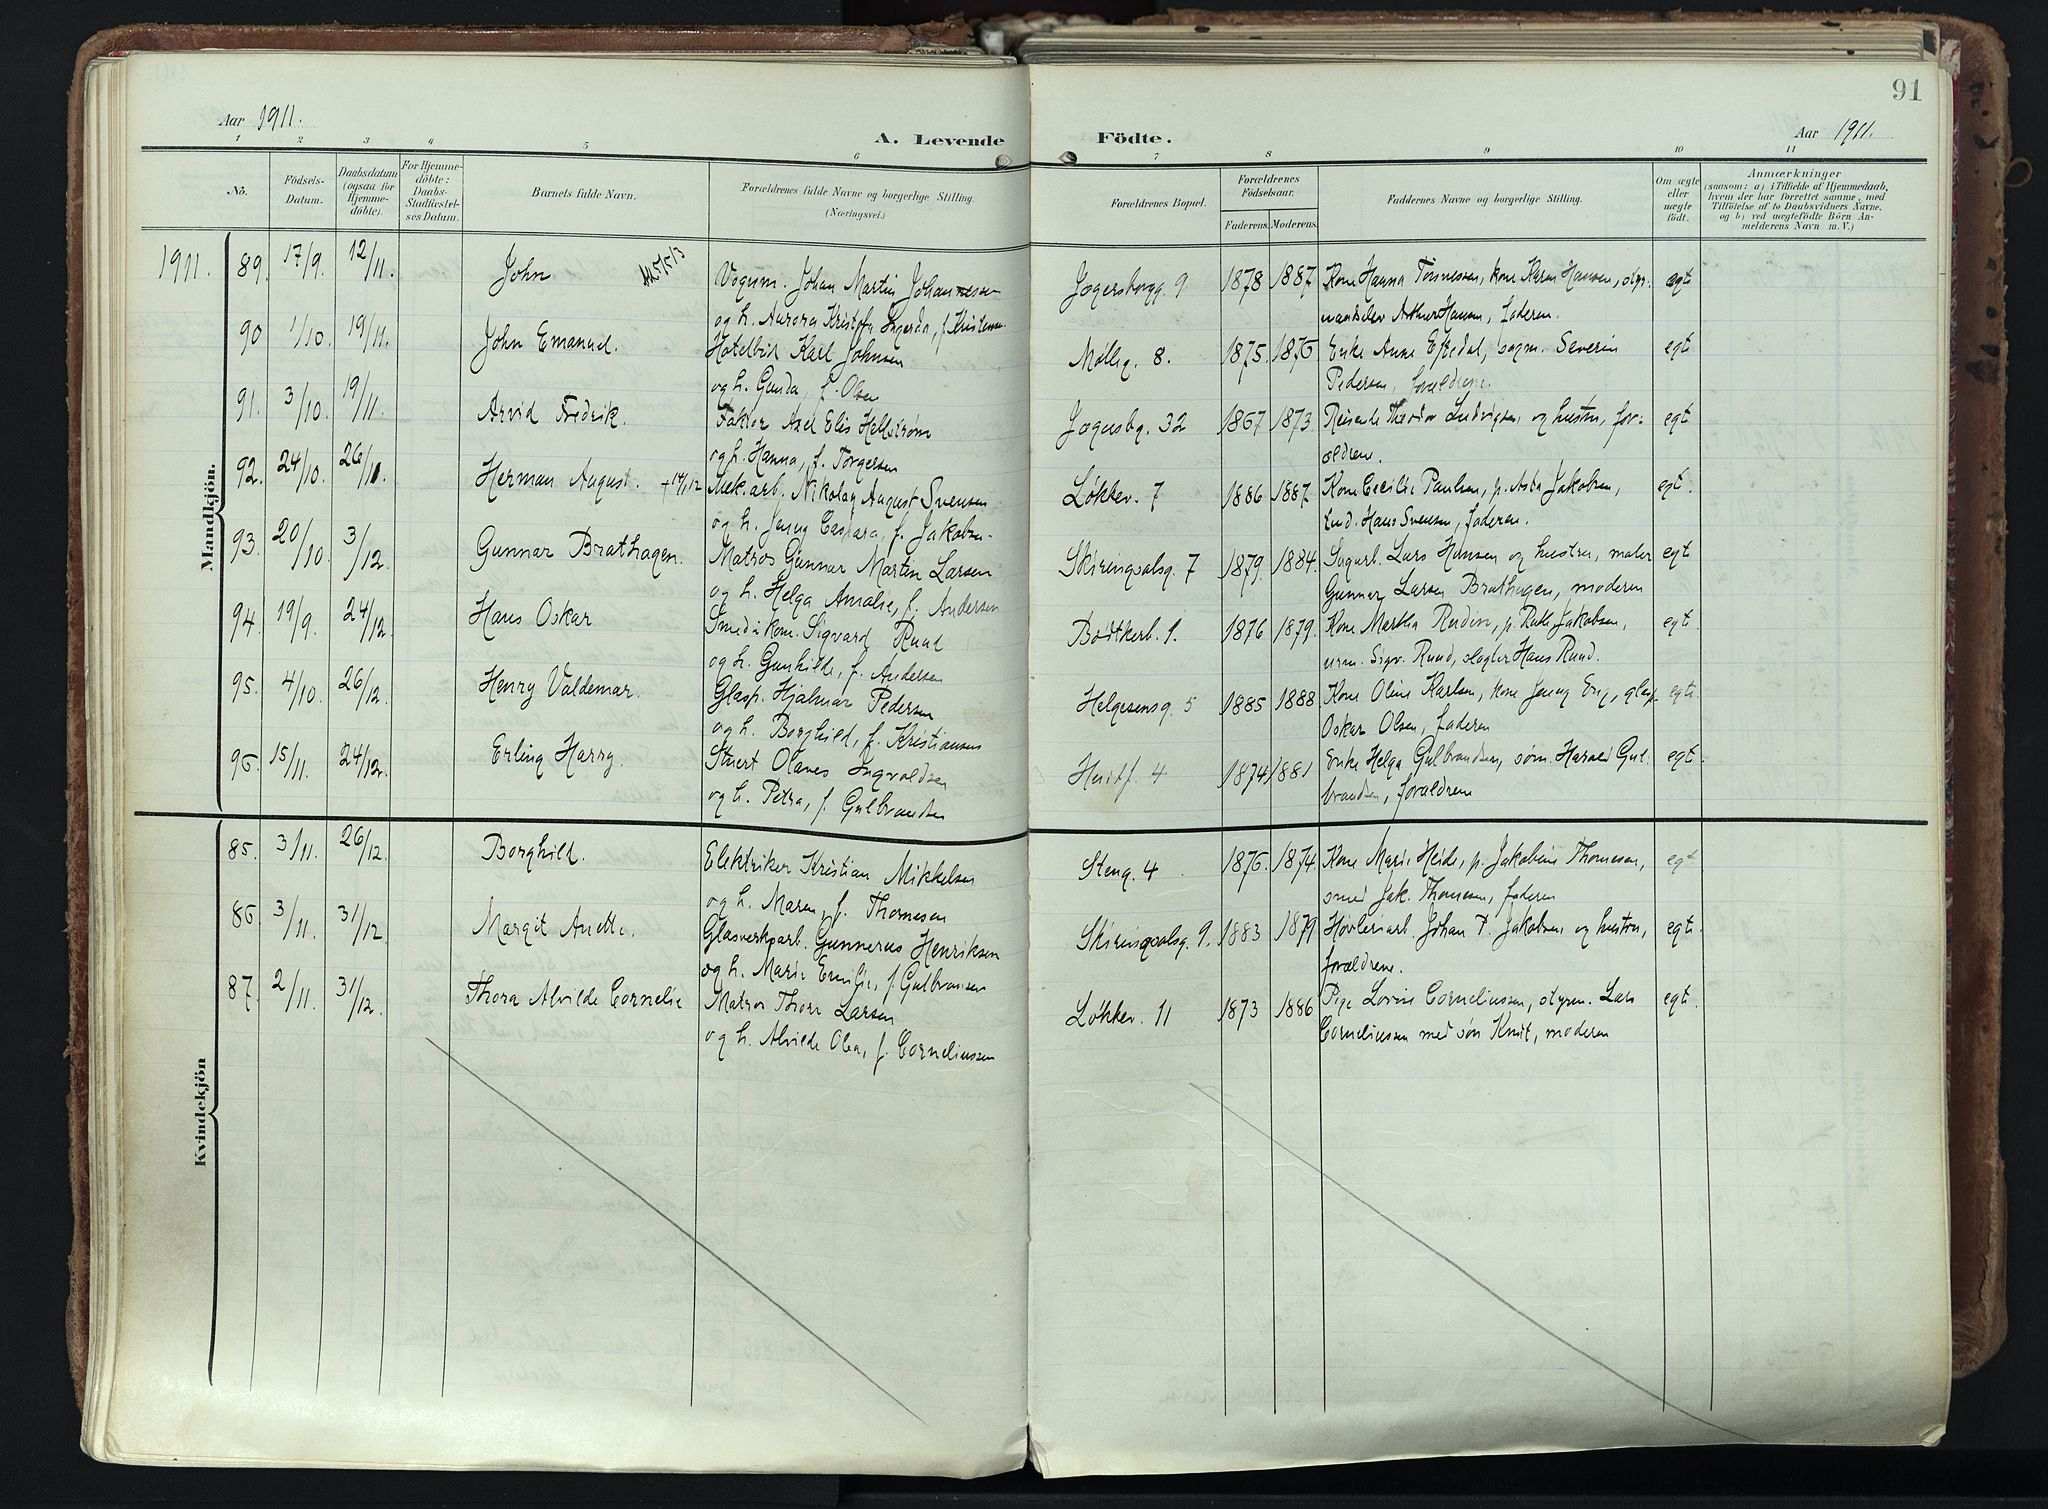 91
Aar 1911.
A. Levende Födte.
Aar 1911.
1 2 3 4 5 6 7 8 9 10 11
No. Födsels-Datum. Daabsdatum (ogsaa for Hjemmedöbte). For Hjemmedöbte: Daabs-Stadfæstelses Datum. Barnets fulde Navn. Forældrenes fulde Navne og borgerlige Stilling. (Næringsvei.) Forældrenes Bopæl. Forældrenes Födselsaar. Faderens. Moderens. Faddernes Navne og borgerlige Stilling. Om ægte eller uægte födt. Anmærkninger (saasom: a) i Tilfælde af Hjemmedaab, hvem der har forrettet samme, med Tilföielse af to Daabsvidners Navne, og b) ved uægtefödte Börn Anmelderens Navn m. V.)
Mandkjön.
1911. 89. 17/9. 12/11. John Vognm. Johan Martin Johannessen Jegersborgg. 9 1878 1887 Kone Hanna Tønnessen, kone Karen Hansen, styr-egte
og h. Aurora Ingerda, f. Kristensen mandselev Arthur Hansen, faderen.
90 1/10. 19/11. John Emanuel. Karl Johnsen Mølleg. 8. 1875. 1876 Enke Anne, vognm. Severin egte
og h. Gunda, f. Olsen Pedersen, forældrene.
91. 3/10. 19/11. Arvid Fredrik. Faktor Axel Elis Hellstrøm Jegersbg. 32 1867 1873 Reisende Theodor Ludvigsen og hustru, for-egte
og h. Hanna, f. Torgersen ældrene.
92. 24/10. 26/10. Herman August. Mek.arb. Nikolay August Svensen Løkkev. 7 1886 1887 Kone Cecilie Paulsen, p. Asta Jakobsen, egte.
og h. Jenny Caspara, f. Jakobsen Hans Svensen, faderen.
93. 20/10. 3/12. Gunnar Brathagen. Matros Gunnar Martin Larsen Skiringsalsg. 7 1879. 1884. Sagarb. Lars Hansen og hustru, maler egte
og h. Helga Amalie, f. Andersen Gunnar Larsen Brathagen, moderen
94. 19/9. 24/12. Hans Oskar Sigvard Ruud Bødtkerb. 1. 1876 1879. Kone Martha, p. Ruth Jakobsen, egte.
og h. Gunhilde, f. Andersen urm. Sigv. Ruud, slagter Hans Ruud.
95. 4/10. 26/12. Henry Valdemar. Glasp. Hjalmar Pedersen Helgesensg. 5 1885 1888 Kone Oline Karlsen, kone Jenny Eng, glasp. egte
og h. Borghild, f. Kristiansen Oskar Olsen, faderen
96. 15/11. 24/12. Erling Harry. Stuert Olaves Ingvoldsen 4 1874 1881 Enke Helga Gulbrandsen, søm. Harald Gul-egte
og h. Petra, f. Gulbrandsen brandsen, forældrene
Kvindekjön
85. 3/11. 26/12. Borghild. Elektriker Kristian Mikkelsen Steng. 4 1876. 1874. Kone Marie Heide, p. Jakobine Thomesen, egte
og h. Maren, f. Thomesen smed Jak. Thomesen, faderen
86. 3/11. 31/12. Margit Anette. Glasverksarb. Gunnerus Henriksen Skiringsalsg. 9. 1883 1879 Høvleriarb. Johan P. Jakobsen og hustru, egte.
og h. Marie Emilie, f. Gulbransen forældrene.
87. 2/11. 31/12. Thora Alvilde Cornelie Matros Thor Larsen Løkkev. 11 1873 1886 Pige Lovise Corneliussen, styrm. Lars egte.
og h. Alvilde Olea, f. Corneliussen Corneliussen med søn Knut, moderen